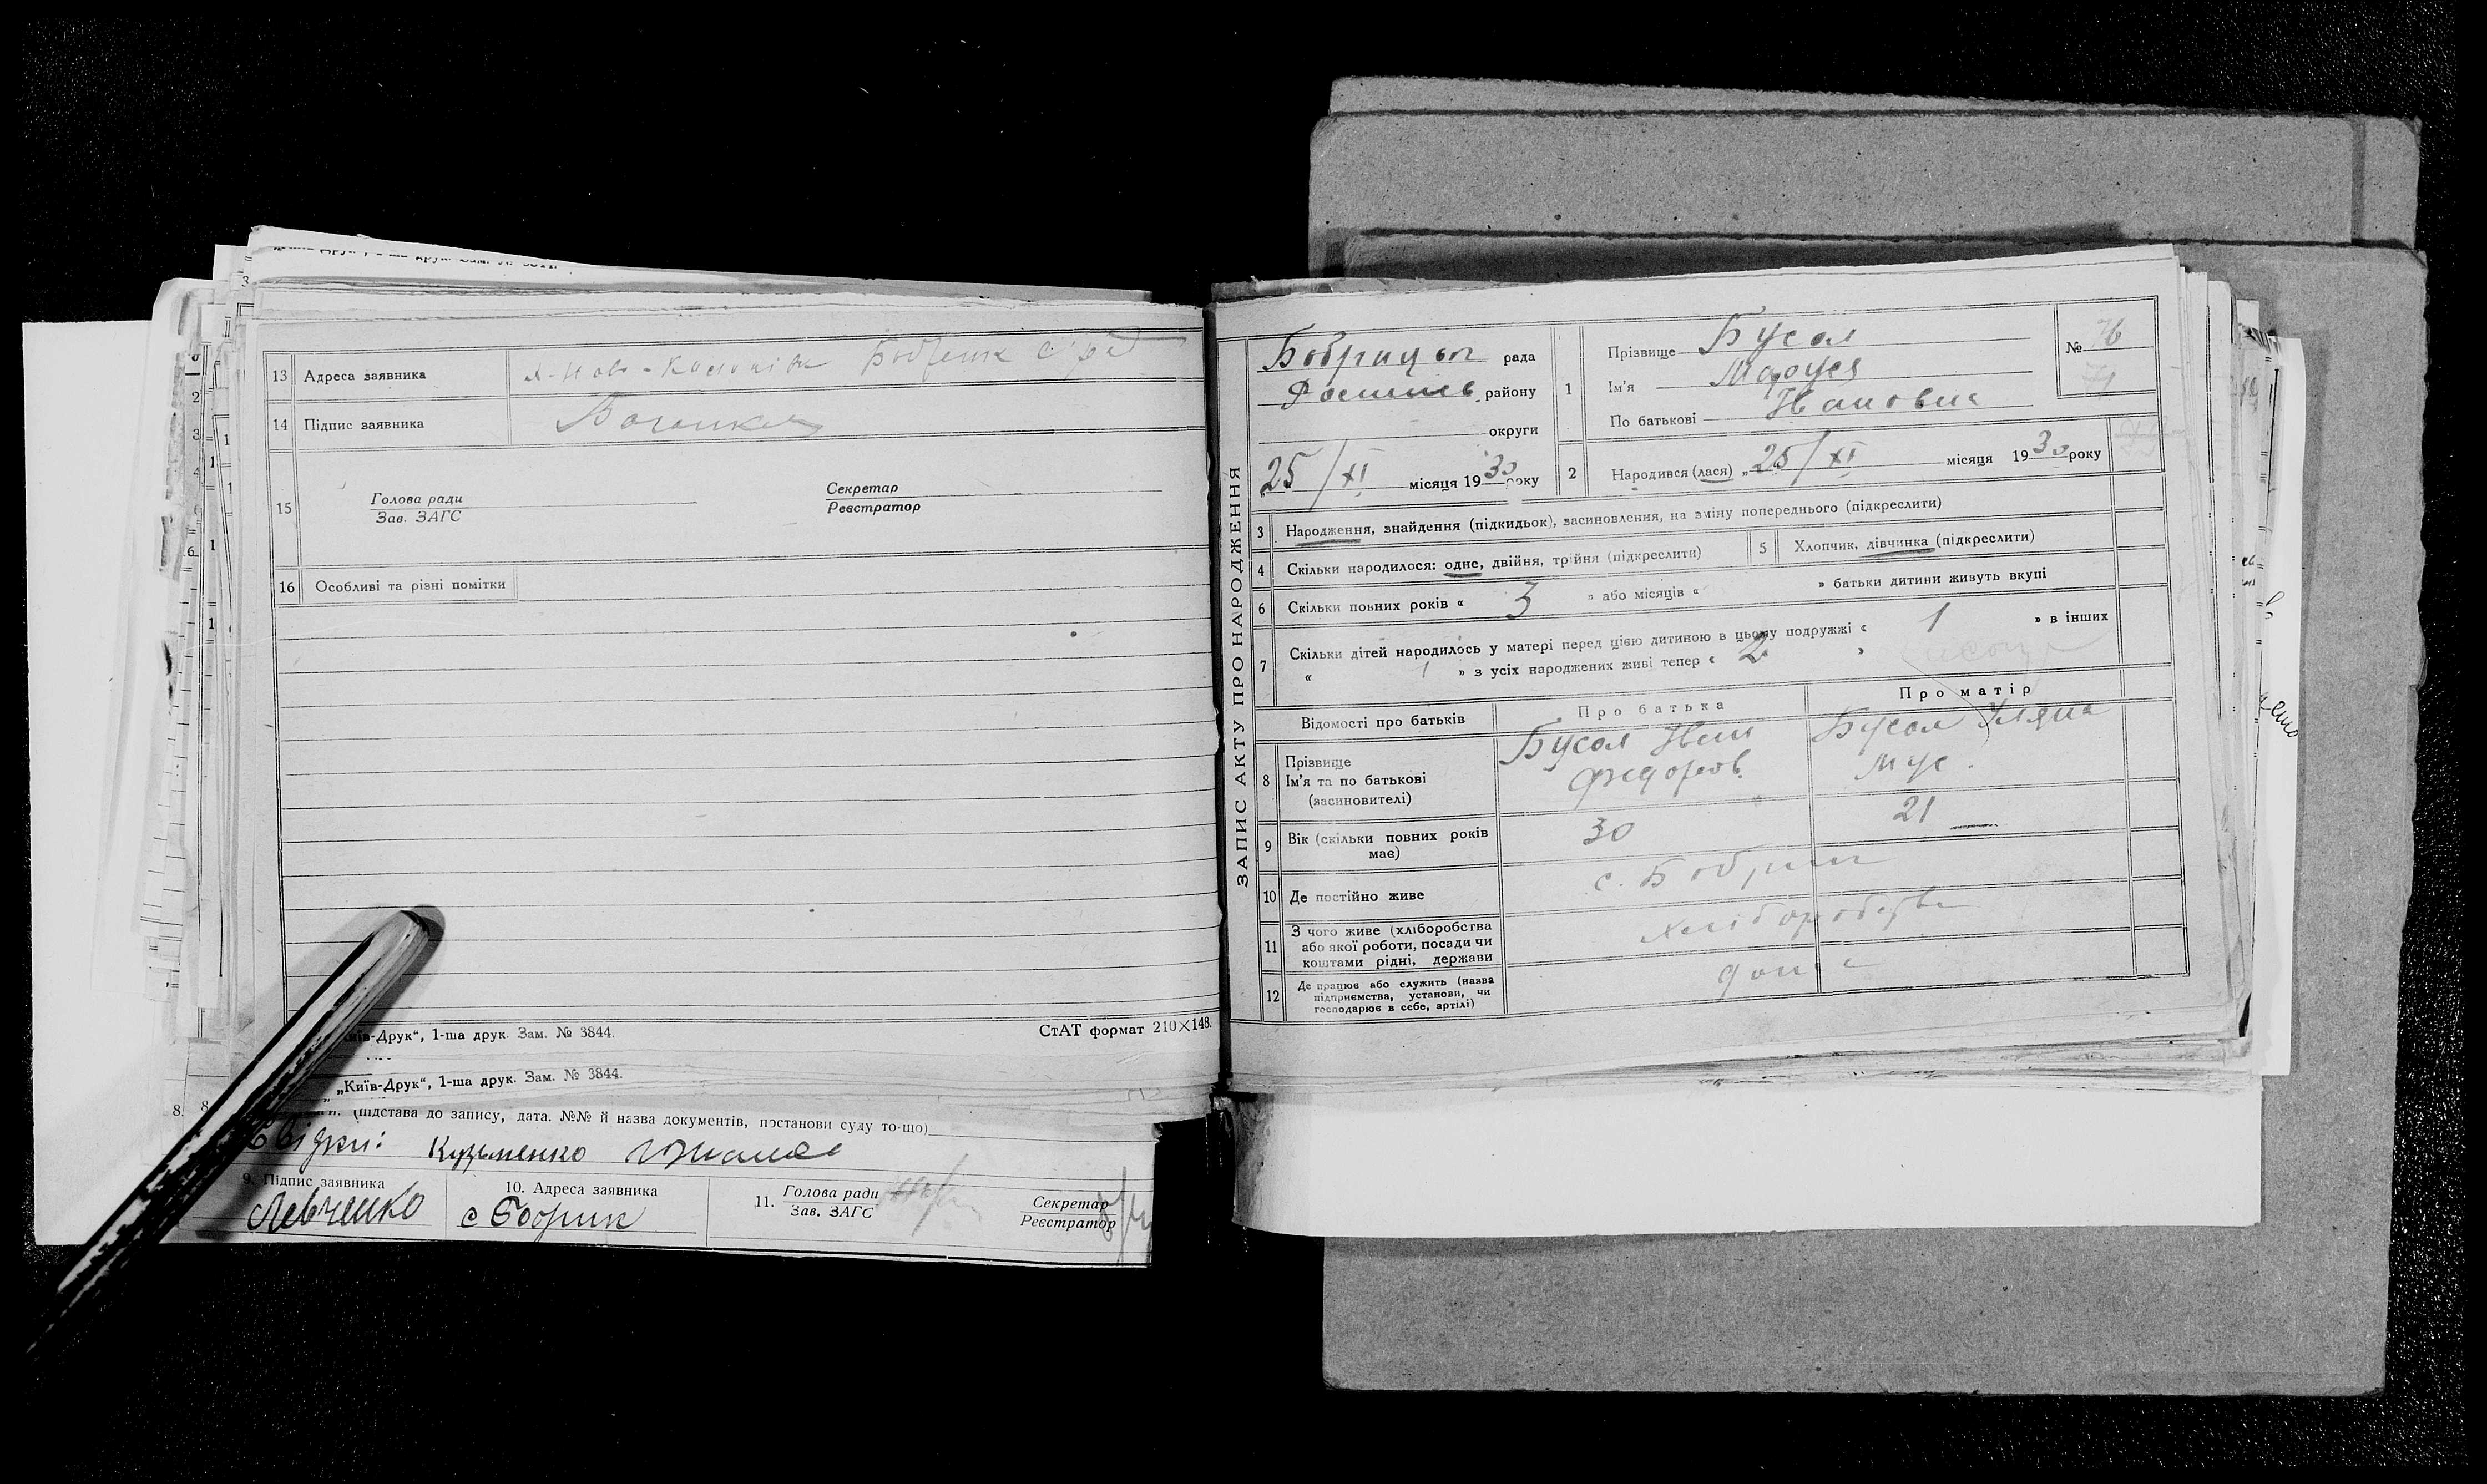 13 Адреса заявника
14 Підпис заявника
15 Голова ради
Зав. ЗАГС
Секретар
Реєстратор
16 Особливі та різні помітки
"Київ-Друк", 1-ша друк. Зам. № 3844.
СтАТ формат 210×148.
„Київ-Друк“, 1-ша друк. Зам. № 3844.
(підстава до запису, дата. №№ й назва документів, постанови суду то-що)
Свідки: Кузьменко
9. Підпис заявника
Левченко
10. Адреса заявника
с Бобрик
11. Голова ради
Зав. ЗАГС
Секретар
Реєстратор
ЗАПИС АКТУ ПРО НАРОДЖЕННЯ
Бобрицьк рада
району
округи
25/XI місяця 1930 року
1 Прізвище Бусол
Ім'я Маруся
По батькові Івановна
№ 76
71
2 Народився (лася) „25/XI місяця 1930 року
3 Народження, знайдення (підкидьок), засиновлення, на зміну попереднього (підкреслити)
4 Скільки народилося: одне, двійня, трійня (підкреслити)
5 Хлопчик, дівчинка (підкреслити)
6 Скільки повних років « 3 » або місяців « » батьки дитини живуть вкупі
7 Скільки дітей народилось у матері перед цією дитиною в цьому подружжі « 1 » в інших
« 1 » з усіх народжених живі тепер « 2 »
Відомості про батьків
Про батька
Про матір
8 Прізвище
Ім'я та по батькові
(засиновителі)
Бусол Іван
Федоров.
Бусол Уляна
Мус.
9 Вік (скільки повних років
має)
30
21
10 Де постійно живе
с. Бобрик
11 З чого живе (хліборобства
або якої роботи, посади чи
коштами рідні, держави
хліборобства
12 Де працює або служить (назва
підприємства, установи, чи
господарює в себе, артілі)
дома